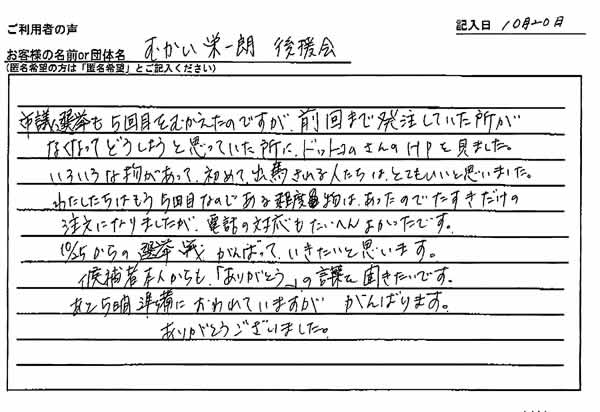 ご利用者の声
記入日 10月20日
お客様の名前or団体名 むかい栄一朗 後援会
(匿名希望の方は「匿名希望」とご記入ください)
市議選挙も5回目をむかえたのですが、前回まで発注していた所が
なくなってどうしようと思っていた所に、ドットコムさんのHPを見ました。
いろいろな物があって、初めて、出馬される人たちは、とてもいいと思いました。
わたしたちはもう5回目なのである程度物は、あったのでたすきだけの
注文になりましたが、電話の対応もたいへんよかったです。
10/25からの選挙戦がんばって、いきたいと思います。
候補者本人からも、「ありがとう」の言葉を聞きたいです。
あと5日間準備におわれていますが がんばります。
ありがとうございました。